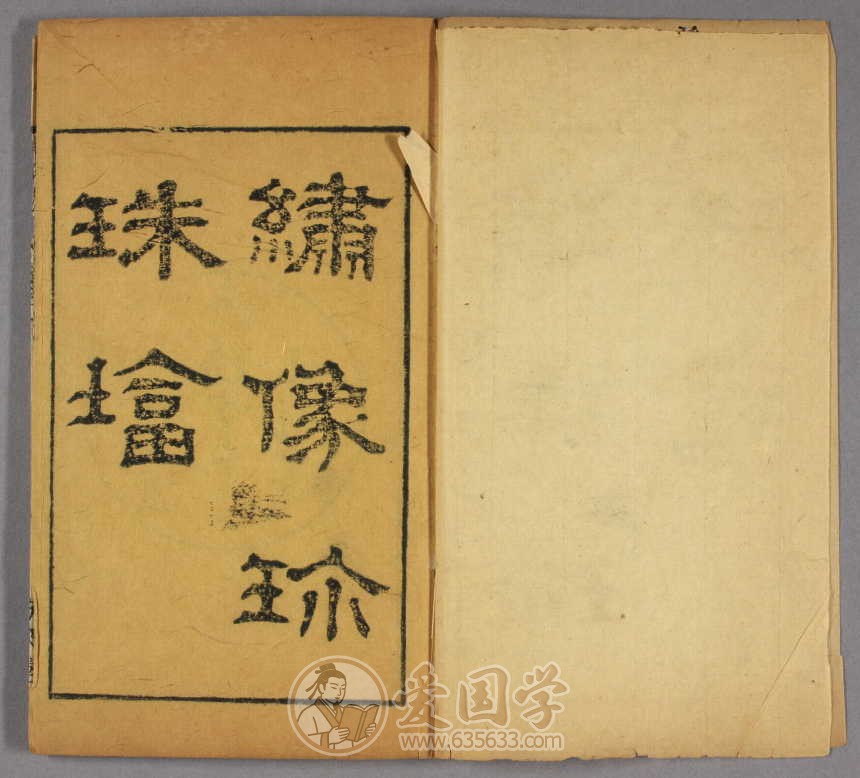 繡像珎
珠塔
爱国学
www.635633.com